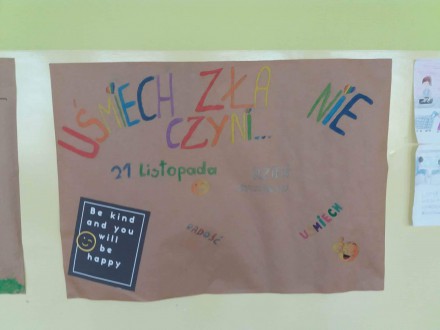 UŚMIECH ZŁA NIE
CZYNI...
21 Listopada
Be kind
and you
will
be
happy
RADOŚĆ
UŚMIECH